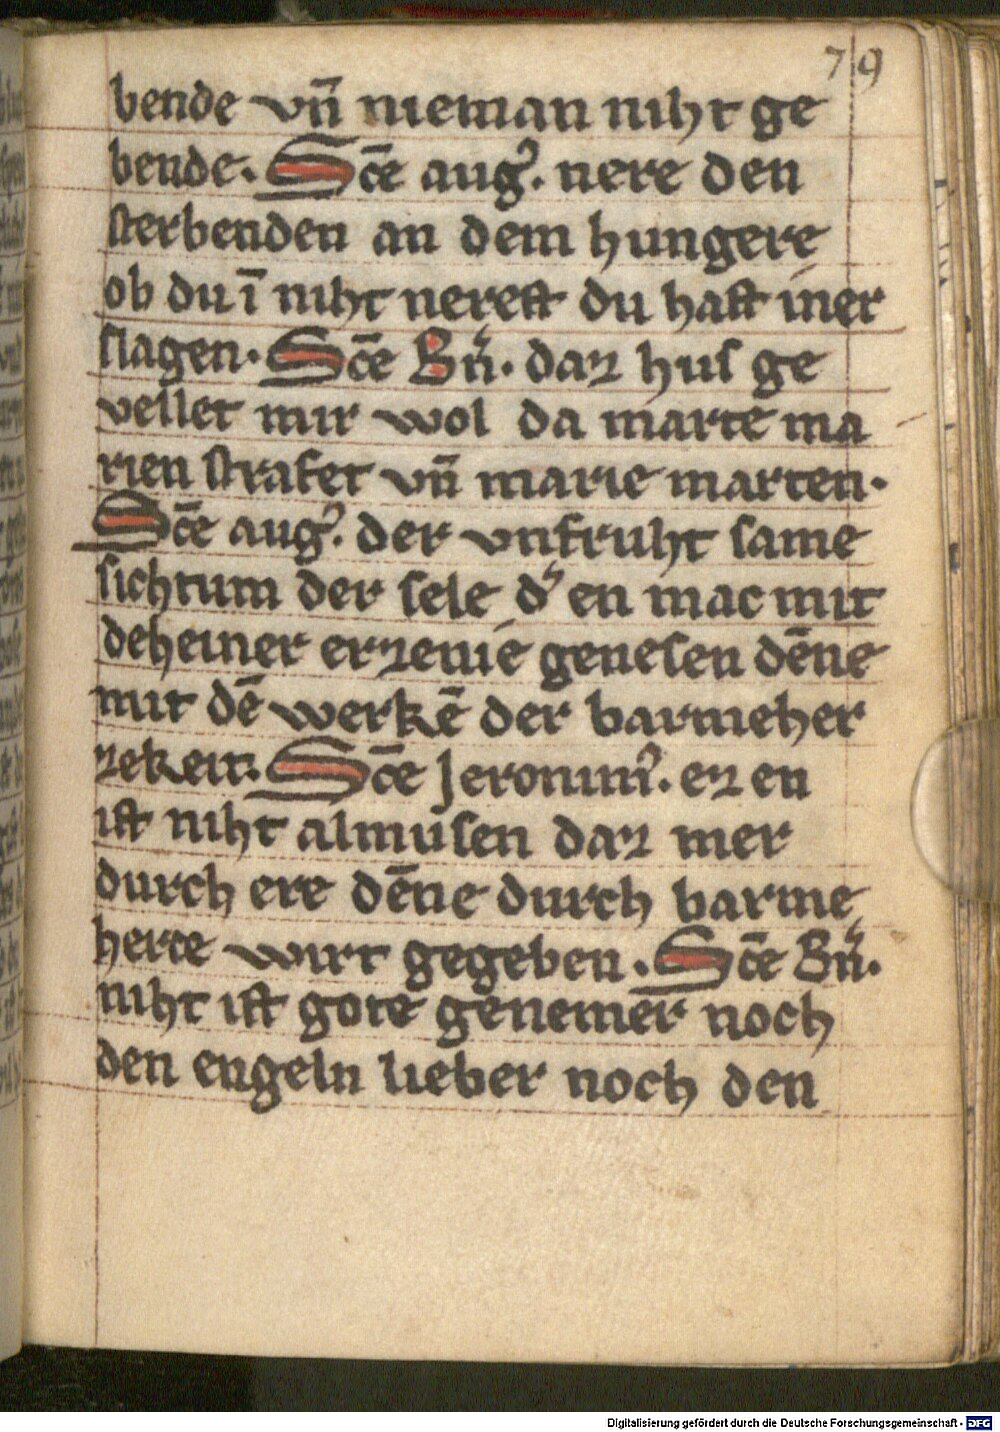 79
bende vn̄ nieman niht ge
bende. Sc̄e aug᾽. nere den
sterbenden an dem hungere
ob du ī niht nerest du hast iner
slagen. Sc̄e Bn̄. daz hus ge
vellet mir wol da marte ma
rien strafet vn̄ marie marten.
Sc̄e aug᾽. der vnfruht same
sichtum der sele d᾽ en mac mit
deheiner erzenie genesen dēne
mit dē werkē der barmeher
zekeit. Sc̄e Jeronim᾽. ez en
ist niht almusen daz mer
durch ere dēne durch barme
herce wirt gegeben. Sc̄e Bn̄.
niht ist gote genemer noch
den engeln lieber noch den
Digitalisierung gefördert durch die Deutsche Forschungsgemeinschaft - DFG